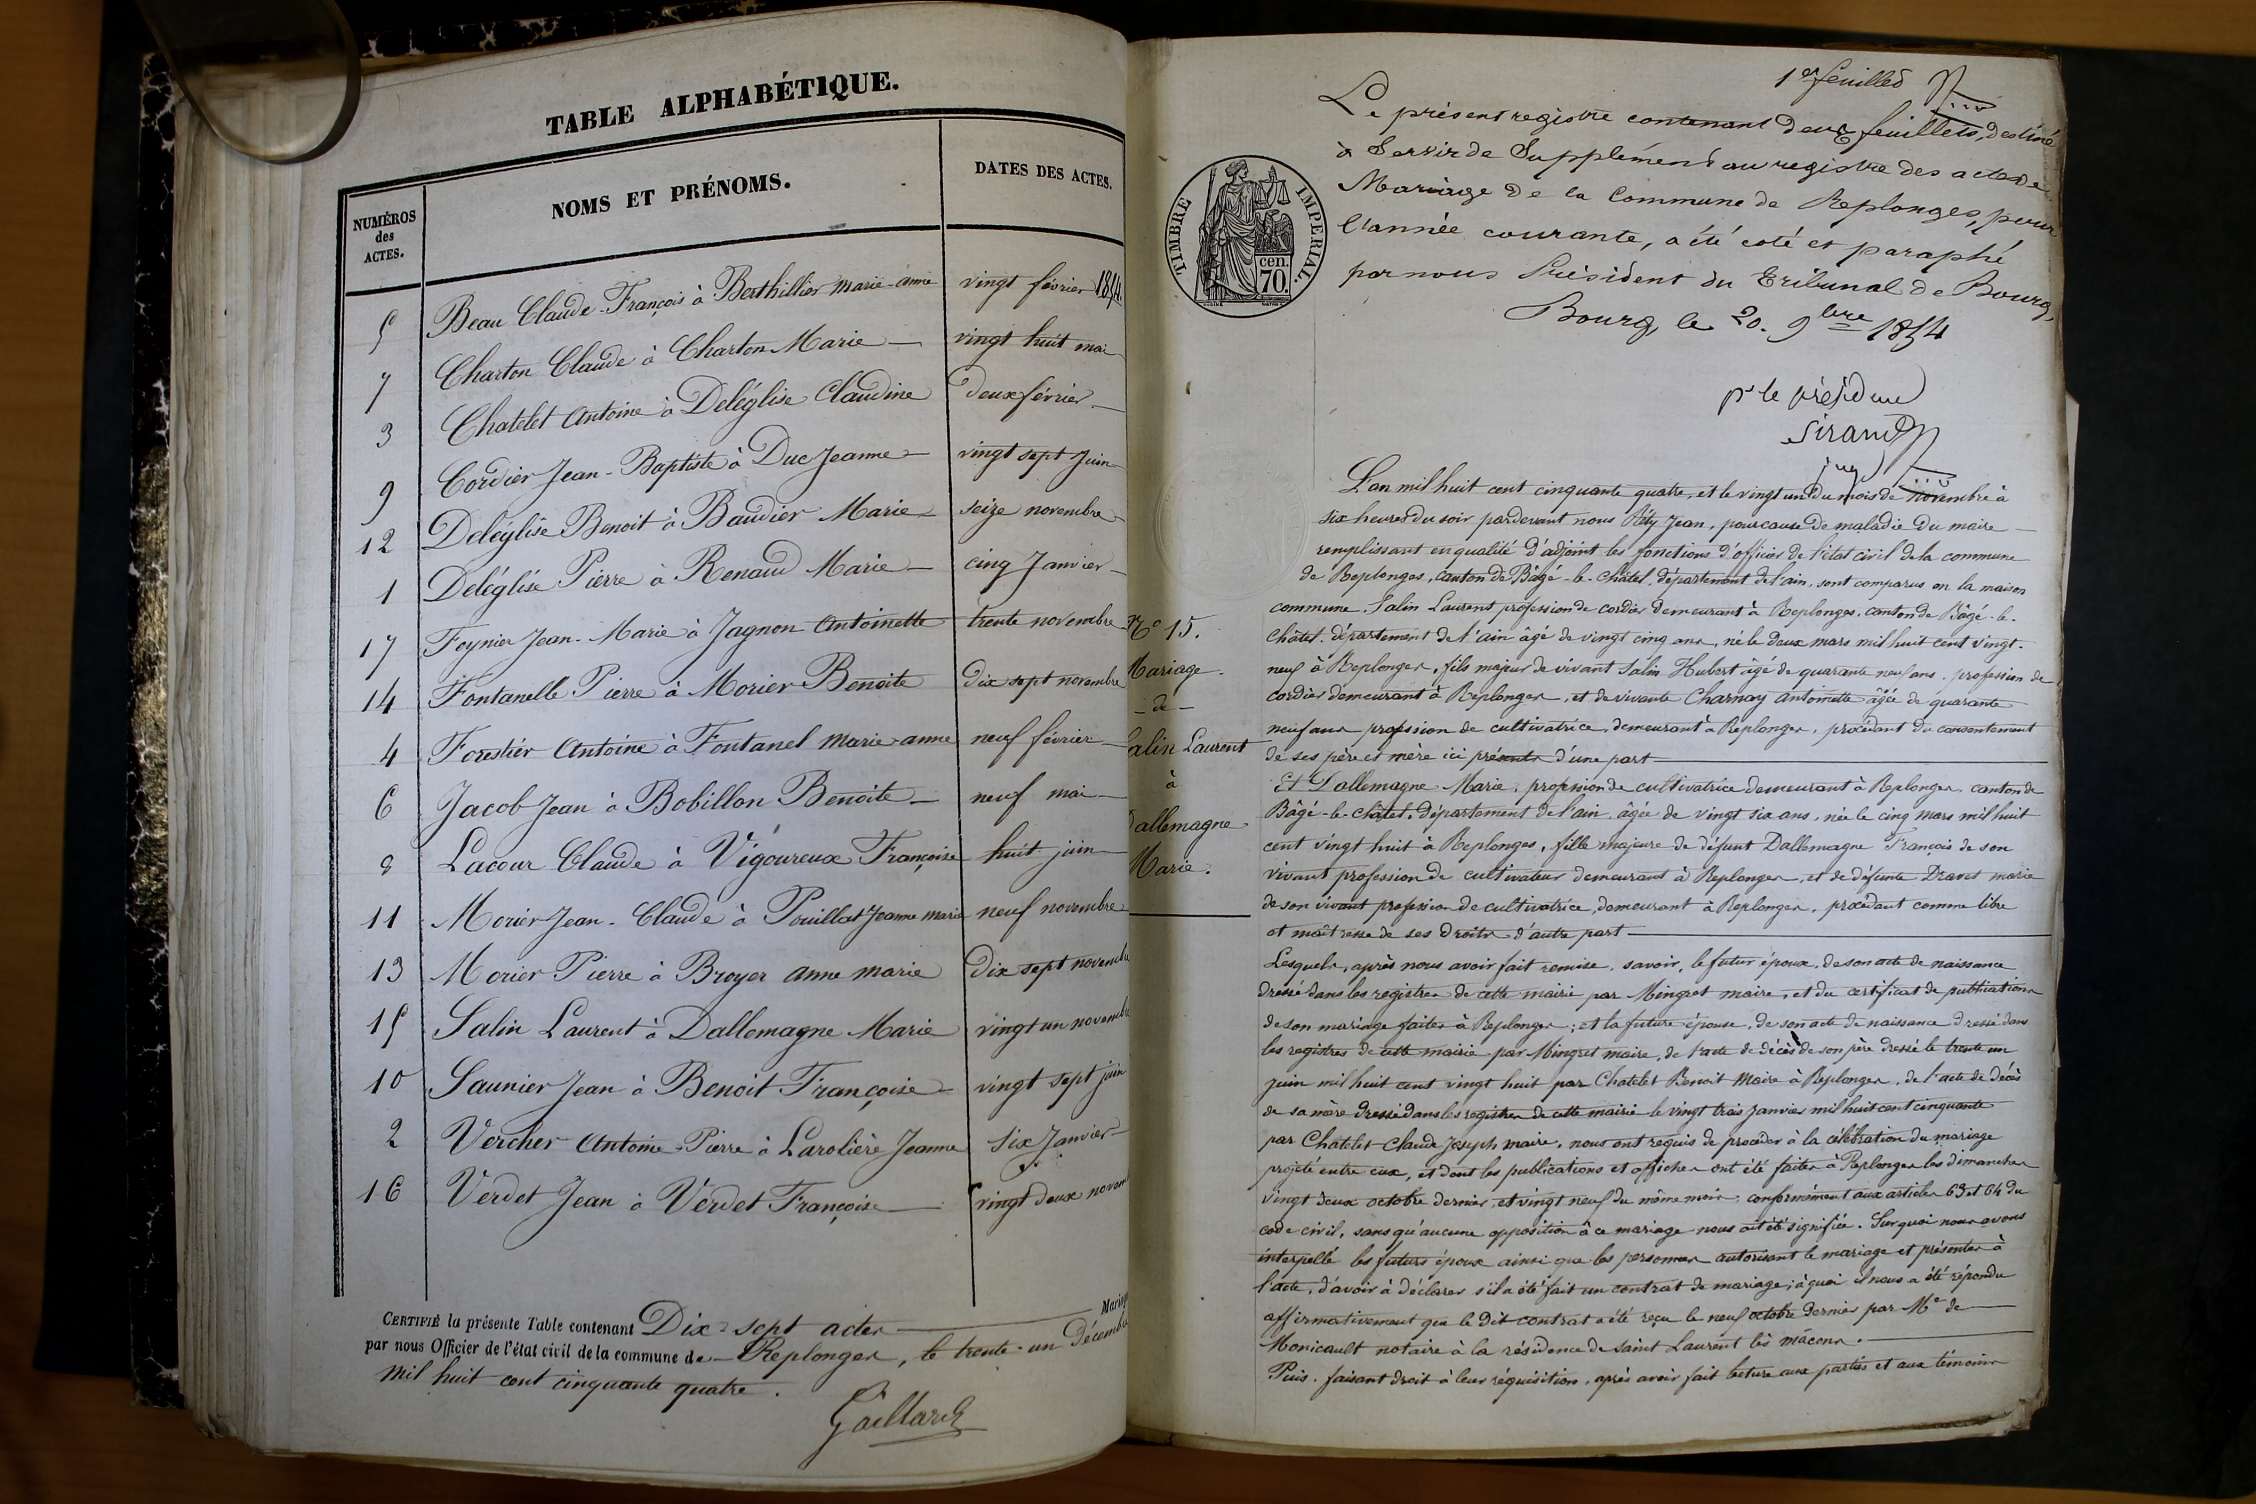 TABLE ALPHABÉTIQUE.
NUMÉROS des ACTES. NOMS ET PRÉNOMS. DATES DES ACTES.
5 Beau Claude-François à Berthillier Marie-anne vingt février 1854.
7 Charton Claude à Charton Marie vingt huit mai
3 Chatelet Antoine à Deléglise Claudine deux février
9 Cordier Jean-Baptiste à Duc Jeanne vingt sept Juin
12 Deléglise Benoit à Baudier Marie seize novembre
1 Deléglise Pierre à Renaud Marie cinq Janvier
17 Feynier Jean-Marie à Jagnon Antoinette trente novembre
14 Fontanelle Pierre à Morier Benoite dix sept novembre
4 Forestier Antoine à Fontanel marie-anne neuf février
6 Jacob Jean à Bobillon Benoite neuf mai
8 Lacour Claude à Vigoureux Françoise huit juin
11 Morier Jean-Claude à Pouillat Jeanne marie neuf novembre
13 Morier Pierre à Broyer anne marie dix sept novembre
15 Salin Laurent à Dallemagne Marie vingt un novembre
10 Saunier Jean à Benoit Françoise vingt sept juin
2 Vercher Antoine-Pierre à Larolière Jeanne six Janvier
16 Verdet Jean à Verdet Françoise vingt deux novem
CERTIFIÉ la présente Table contenant Dix-sept actes Mariag
par nous Officier de l'état civil de la commune de Replonges, le trente-un Décembre
mil huit cent cinquante quatre.
Gaillard
1er feuillet
Le présent registre contenant deux feuillets, destiné
à Servir de Supplément au registre des actes de
Mariage de la Commune de Replonges, pour
l'année courante, a été coté et paraphé
par nous Président du Tribunal de Bourg,
Bourg, le 20. 9bre 1854
pr le président
Sirand
juge
TIMBRE IMPERIAL.
cen.
70.
No 15.
Mariage
de
Salin Laurent
à
Dallemagne
Marie.
L'an mil huit cent cinquante quatre, et le vingt un du mois de novembre à
six heures du soir pardevant nous Rély Jean, pour cause de maladie du maire
remplissant en qualité d'adjoint les fonctions d'officier de l'état civil de la commune
de Replonges, canton de Bâgé-le-Châtel, département de l'ain, sont comparus en la maison
commune, Salin Laurent profession de cordier demeurant à Replonges, canton de Bâgé-le-
Châtel, département de l'ain âgé de vingt cinq ans, né le deux mars mil huit cent vingt-
neuf à Replonges, fils majeur de vivant Salin Hubert âgé de quarante neuf ans, profession de
cordier demeurant à Replonges, et de vivante Charnay antoinette âgée de quarante
neuf ans profession de cultivatrice, demeurant à Replonges, procédant du consentement
de ses père et mère ici présents d'une part
Et Dallemagne Marie, profession de cultivatrice demeurant à Replonges, canton de
Bâgé-le-Châtel, département de l'ain, âgée de vingt six ans, née le cinq mars mil huit
cent vingt huit à Replonges, fille majeure de défunt Dallemagne François de son
vivant profession de cultivateur demeurant à Replonges, et de défunte Dravet marie
de son vivant profession de cultivatrice, demeurant à Replonges, procédant comme libre
et maîtresse de ses droits d'autre part
Lesquels, après nous avoir fait remise, savoir, le futur époux, de son acte de naissance
dressé dans les registres de cette mairie par Mingret maire, et du certificat de publications
de son mariage faites à Replonges; et la future épouse, de son acte de naissance dressé dans
les registres de cette mairie par Mingret maire, de l'acte de décès de son père dressé le trente un
juin mil huit cent vingt huit par Chatelet Benoit Maire à Replonges, de l'acte de décès
de sa mère dressé dans les registres de cette mairie le vingt trois janvier mil huit cent cinquante
par Chatelet Claude Joseph maire, nous ont requis de procéder à la célébration du mariage
projeté entre eux, et dont les publications et affiches ont été faites à Replonges les dimanches
vingt deux octobre dernier, et vingt neuf du même mois, conformément aux articles 63 et 64 du
code civil, sans qu'aucune opposition à ce mariage nous ait été signifiée. Sur quoi nous avons
interpellé les futurs époux ainsi que les personnes autorisant le mariage et présentes à
l'acte, d'avoir à déclarer s'il a été fait un contrat de mariage, à quoi il nous a été répondu
affirmativement que le dit contrat a été reçu le neuf octobre dernier par Me de
Monicault notaire à la résidence de Saint Laurent lès mâcons.
Puis, faisant droit à leur réquisition, après avoir fait lecture aux parties et aux témoins